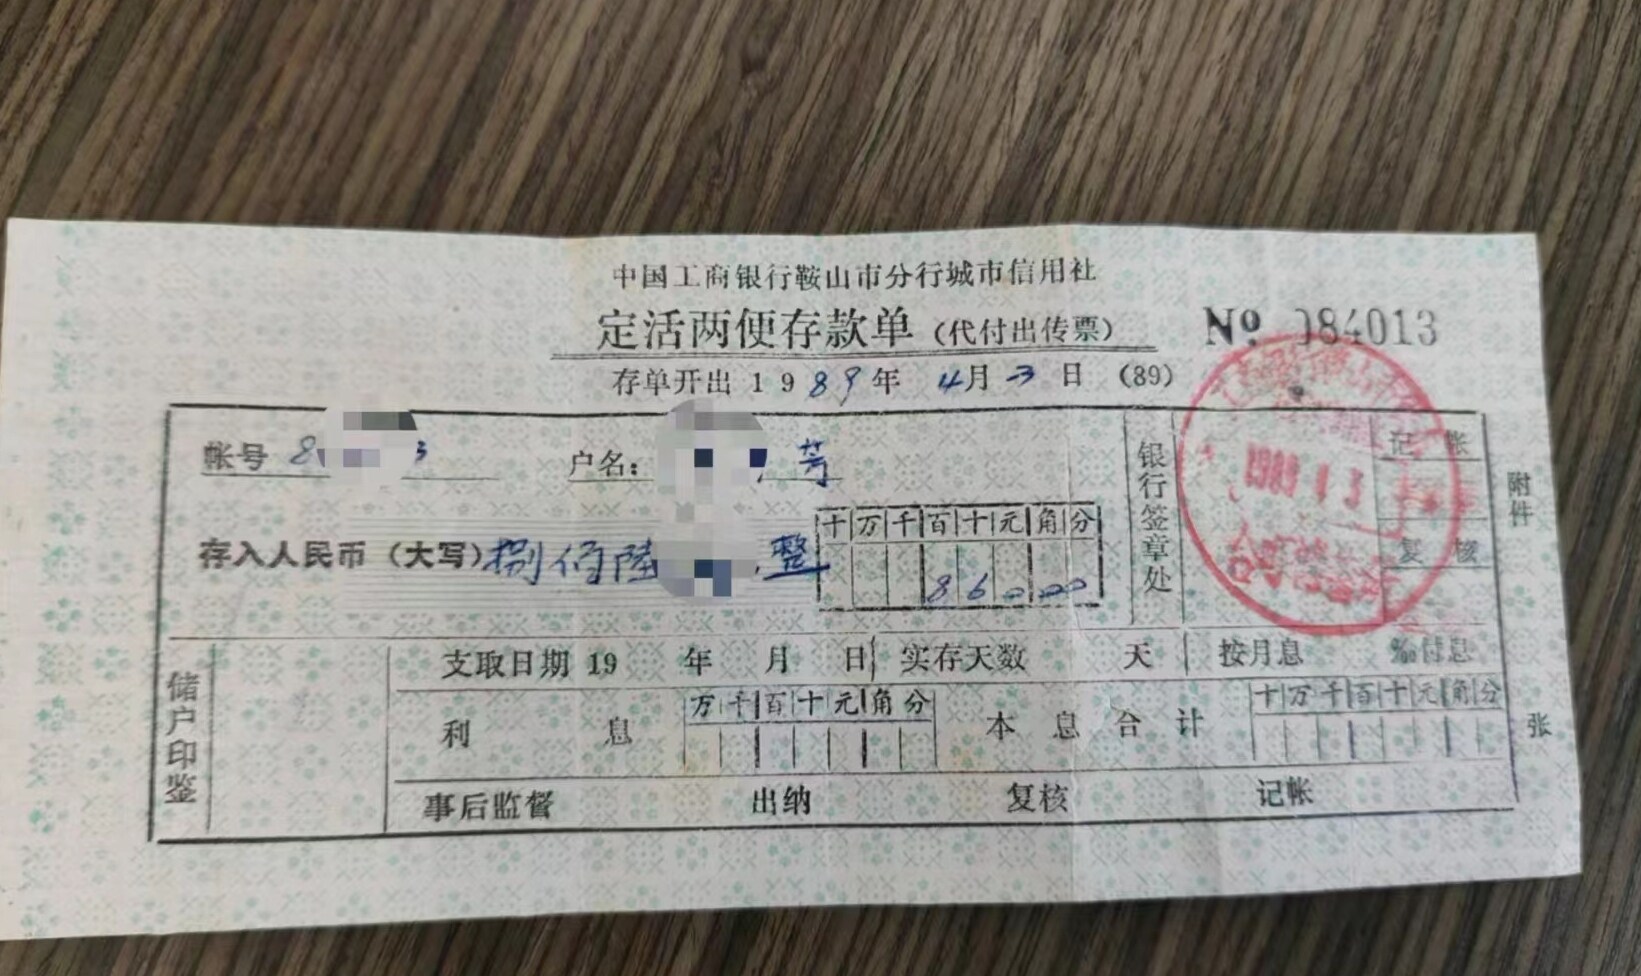 中国工商银行鞍山市分行城市信用社
定活两便存款单(代付出传票) №. 084013
存单开出1989年 4月 3日 (89)
帐号 8 3 户名: 芳
存入人民币(大写)捌佰陆 整
十万千百十元角分
86000
银行签章处
1989 4 3
记帐
复核
附件
张
储户印鉴
支取日期 19 年 月 日 实存天数 天 按月息 ‰付息
利息 万千百十元角分 本息合计 十万千百十元角分
事后监督 出纳 复核 记帐